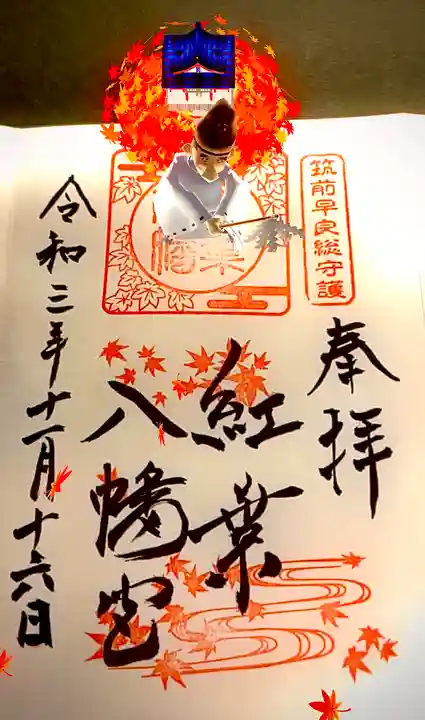 筑前早良総守護
奉拝
紅葉
八幡宮
令和三年十一月十六日